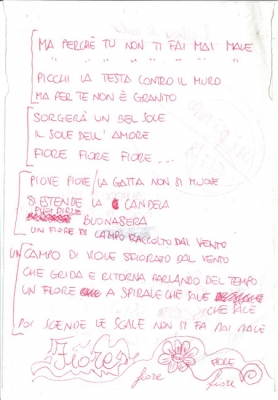 MA PERCHÈ TU NON TI FAI MAI MALE
" " " " " " " "
PICCHI LA TESTA CONTRO IL MURO
MA PER TE NON È GRANITO
SORGERÀ UN BEL SOLE
IL SOLE DELL' AMORE
FIORE FIORE FIORE ...
PIOVE PIOVE / LA GATTA NON SI MUOVE
SI STENDE LA CANDELA
BUONASERA
UN FIORE DI CAMPO RACCOLTO DAL VENTO
UN CAMPO DI VIOLE SFIORATO DAL VENTO
CHE GRIDA E RITORNA PARLANDO DEL TEMPO
UN FIORE A SPIRALE CHE SALE
CHE SALE
POI SCENDE LE SCALE NON TI FA MAI MALE
Fiore
fiore
FIORE
fiore